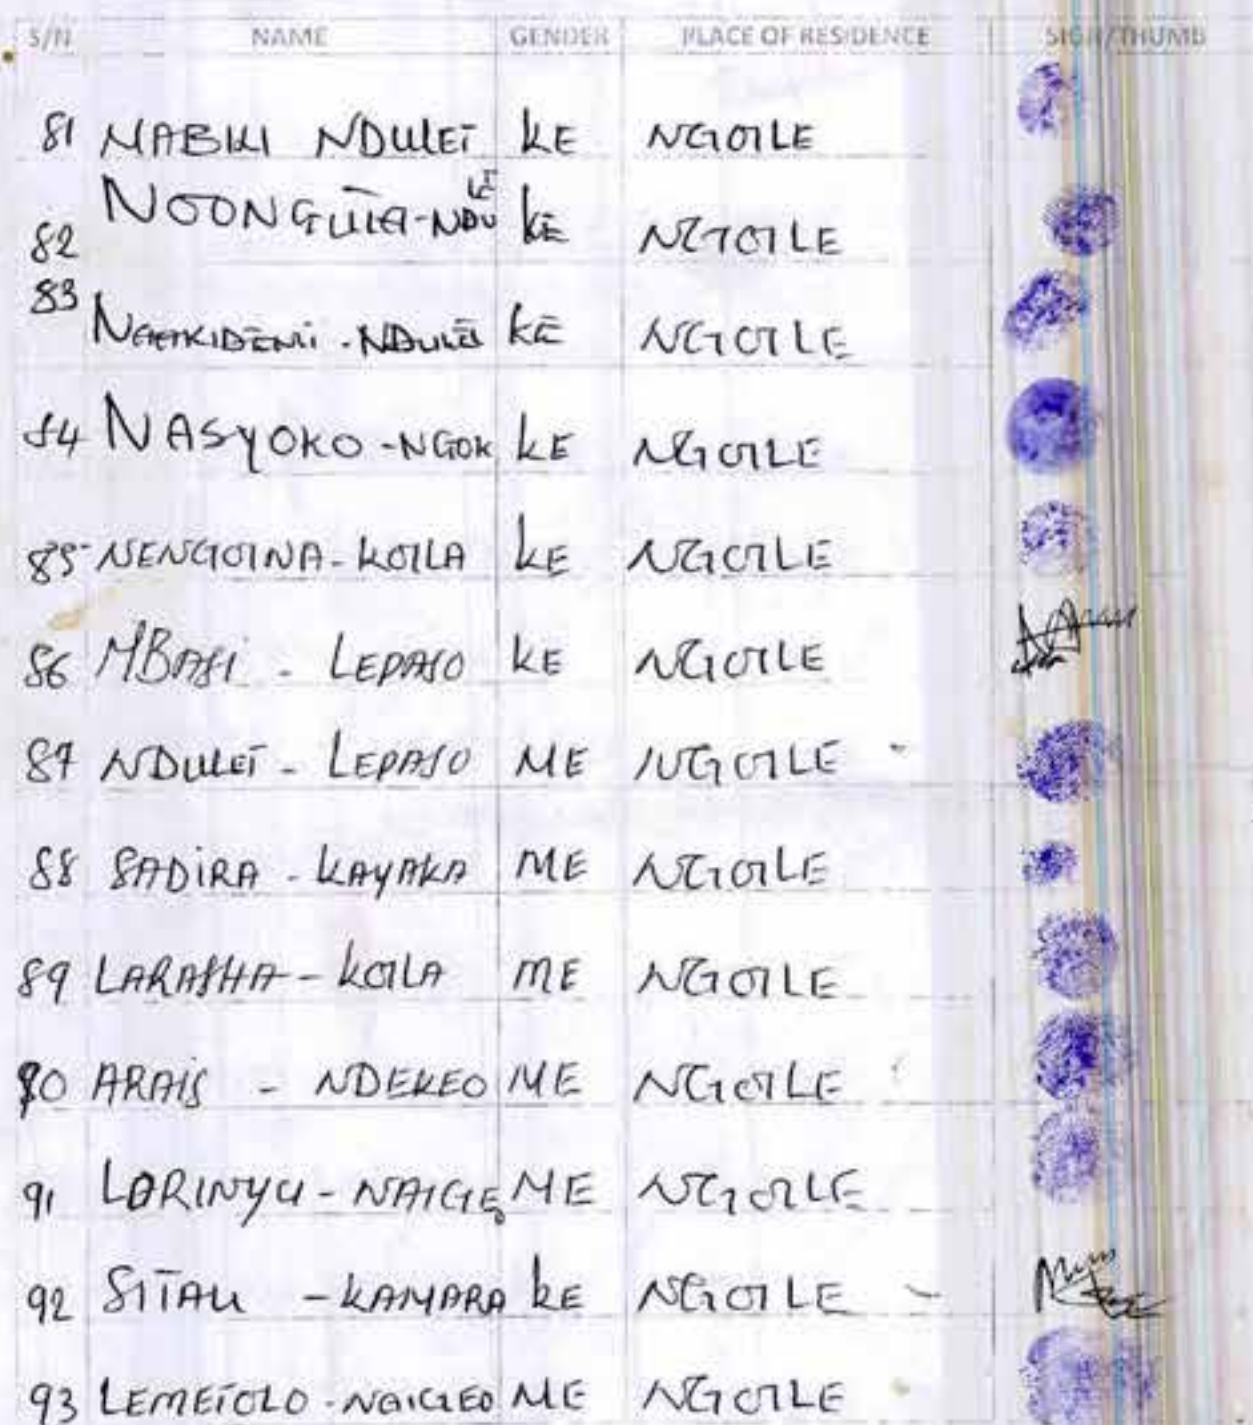 S/N NAME GENDER PLACE OF RESIDENCE SIGN/THUMB
81 NABIKI NDULEI KE NGOILE
82 NOONGUTA-NDULEI KE NGOILE
83 NDULEI KE NGOILE
84 NASYOKO-NGOK KE NGOILE
85 NENGOINA-KOILA KE NGOILE
86 MBASI - LEPASO KE NGOILE
87 NDULEI - LEPASO ME NGOILE
88 SADIRA - KAYAKA ME NGOILE
89 LARASHA - KOILA ME NGOILE
90 ARAIS - NDEKEO ME NGOILE
91 LORINYU - NAIGEO ME NGOILE
92 SITAU - KAMARA KE NGOILE
93 LEMEIOLO - NAIGEO ME NGOILE